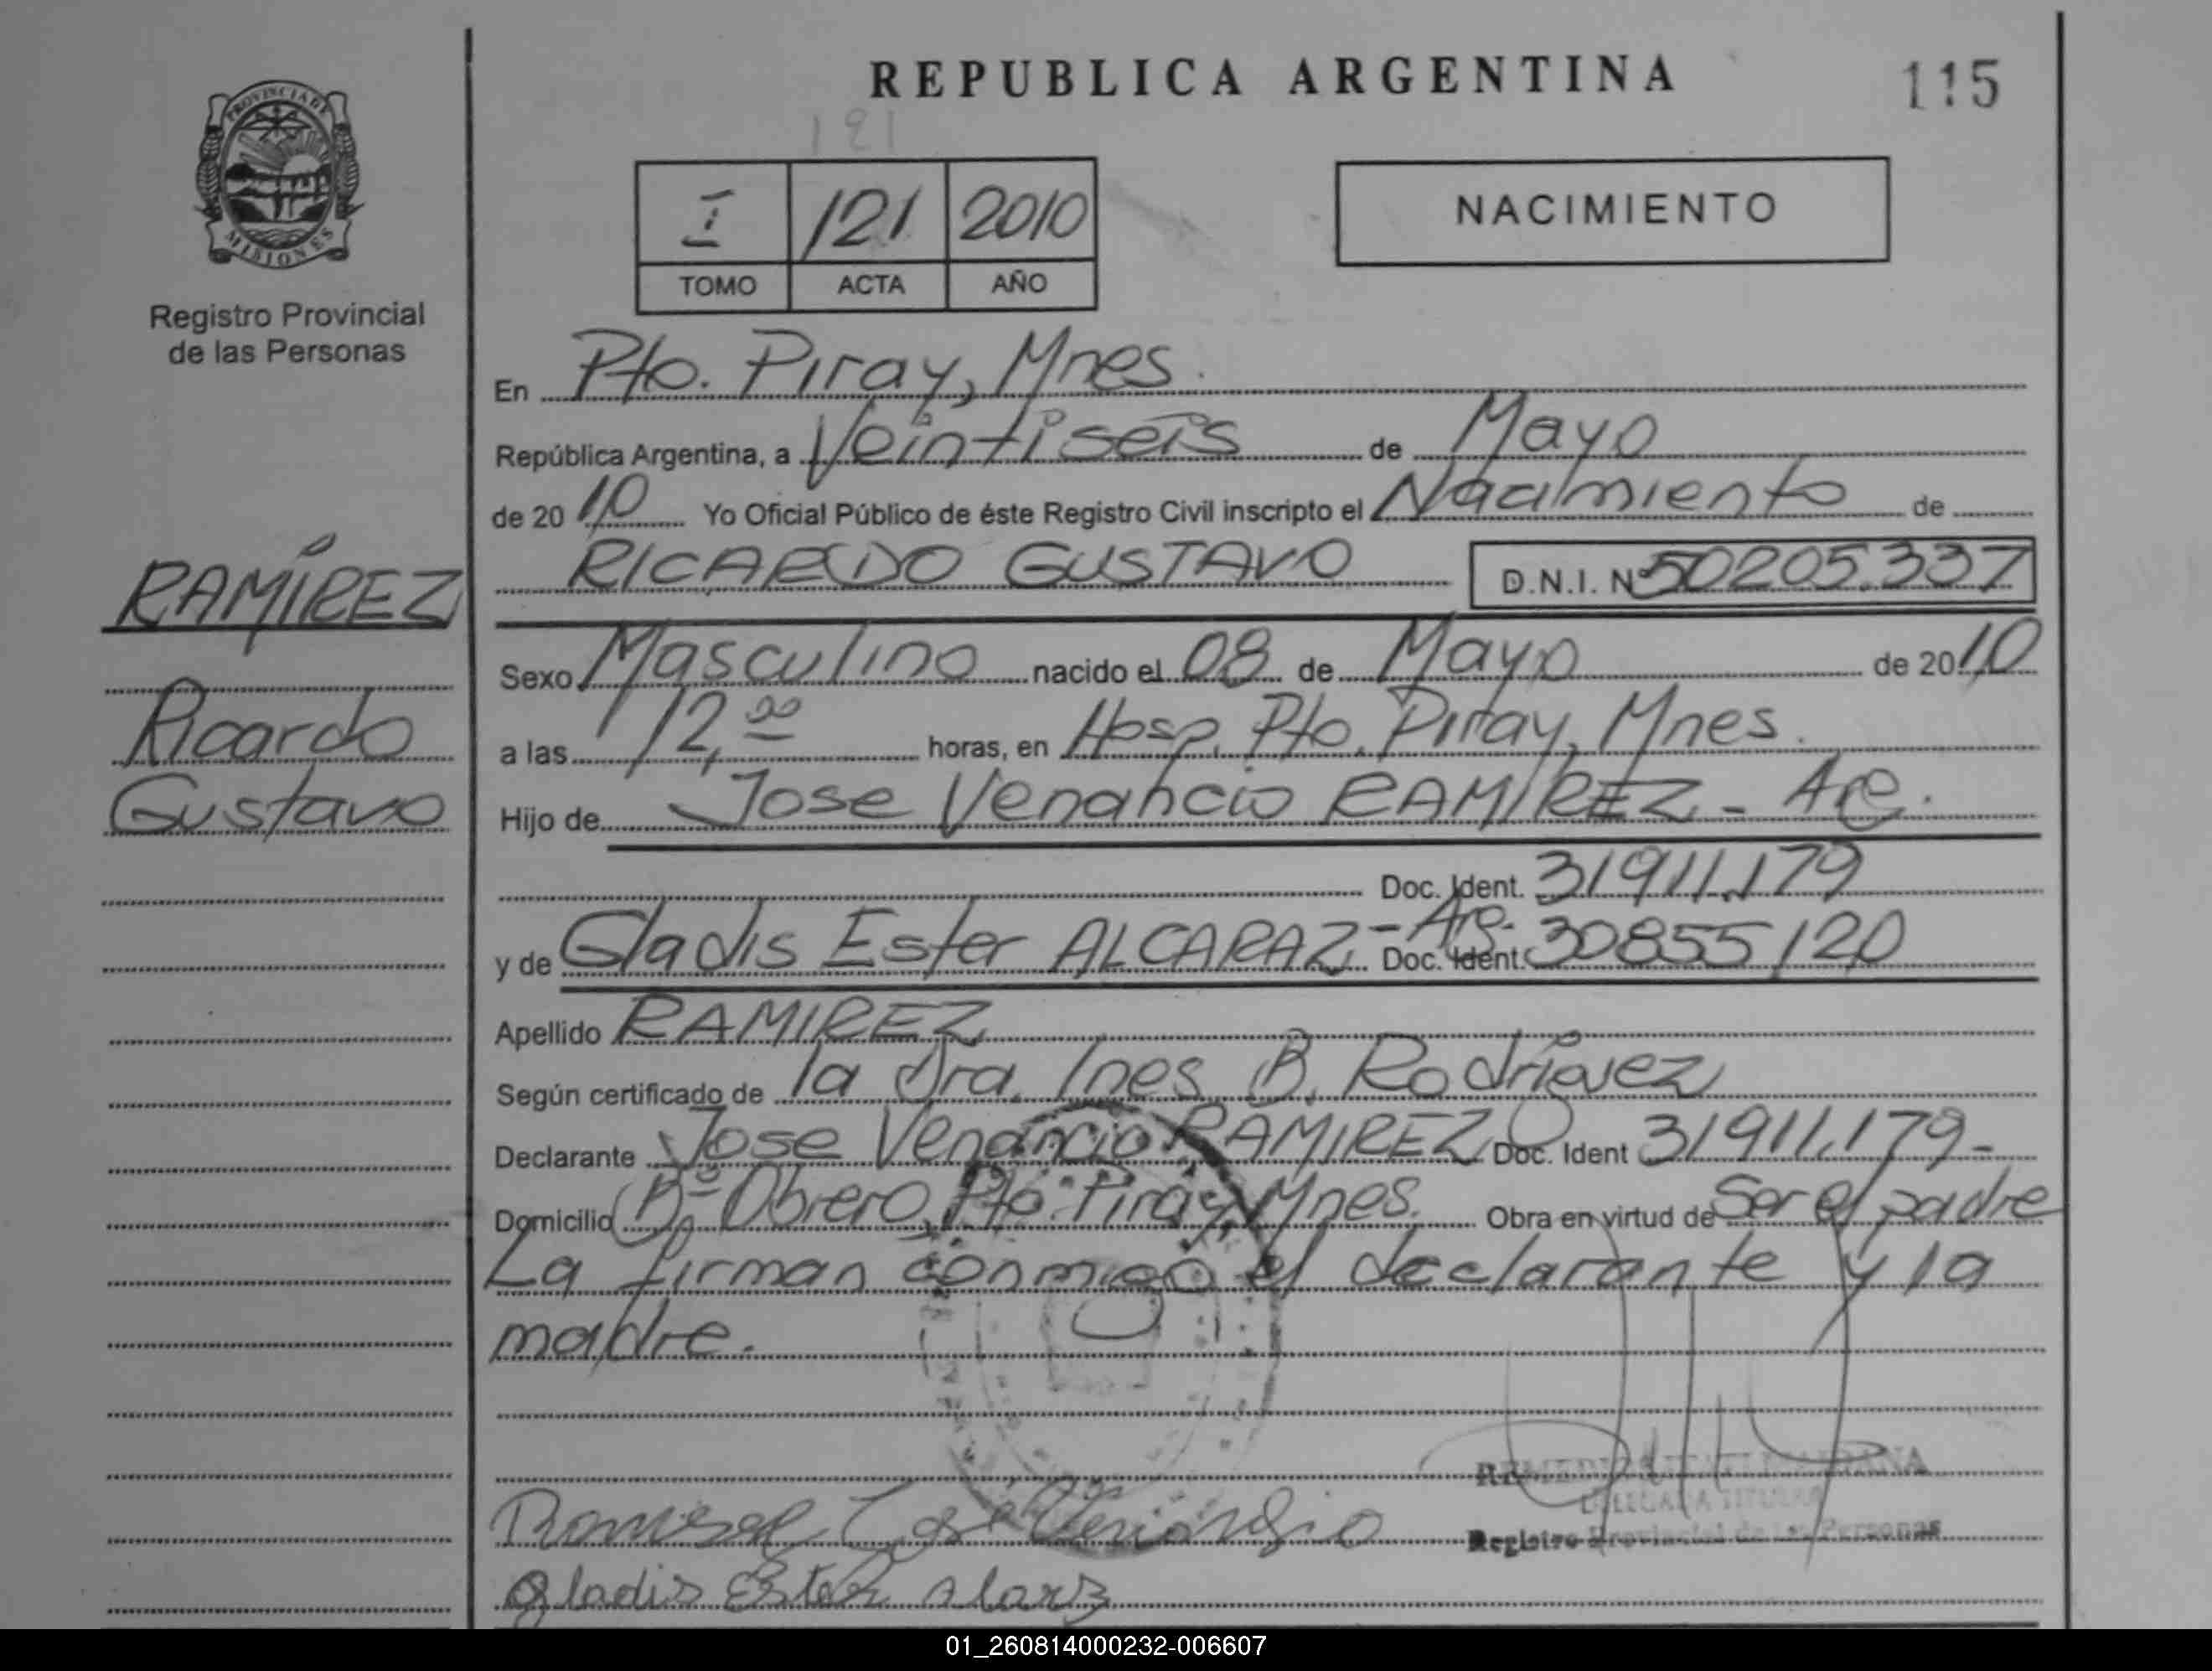 REPUBLICA ARGENTINA
115
PROVINCIA DE
MISIONES
Registro Provincial
de las Personas
121
I 121 2010
TOMO ACTA AÑO
NACIMIENTO
En Pto. Piray, Mnes.
República Argentina, a Veintiseis de Mayo
de 2010 Yo Oficial Público de éste Registro Civil inscripto el Nacimiento de
RICARDO GUSTAVO D.N.I. Nº 50205.337
RAMÍREZ
Ricardo
Gustavo
Sexo Masculino nacido el 08 de Mayo de 2010
a las 12,00 horas, en Hosp. Pto. Piray, Mnes.
Hijo de Jose Venancio RAMIREZ - Arg.
Doc. Ident. 31911.179
y de Gladis Ester ALCARAZ - Arg. Doc. Ident. 30855120
Apellido RAMIREZ
Según certificado de la dra. Ines B. Rodríguez
Declarante Jose Venancio RAMIREZ Doc. Ident 31911.179-
Domicilio Bº Obrero, Pto. Piray, Mnes. Obra en virtud de Ser el padre
La firman conmigo el declarante y la
madre.
DELEGADA TITULAR
Registro Provincial de las Personas
Gladis Ester
01_260814000232-006607